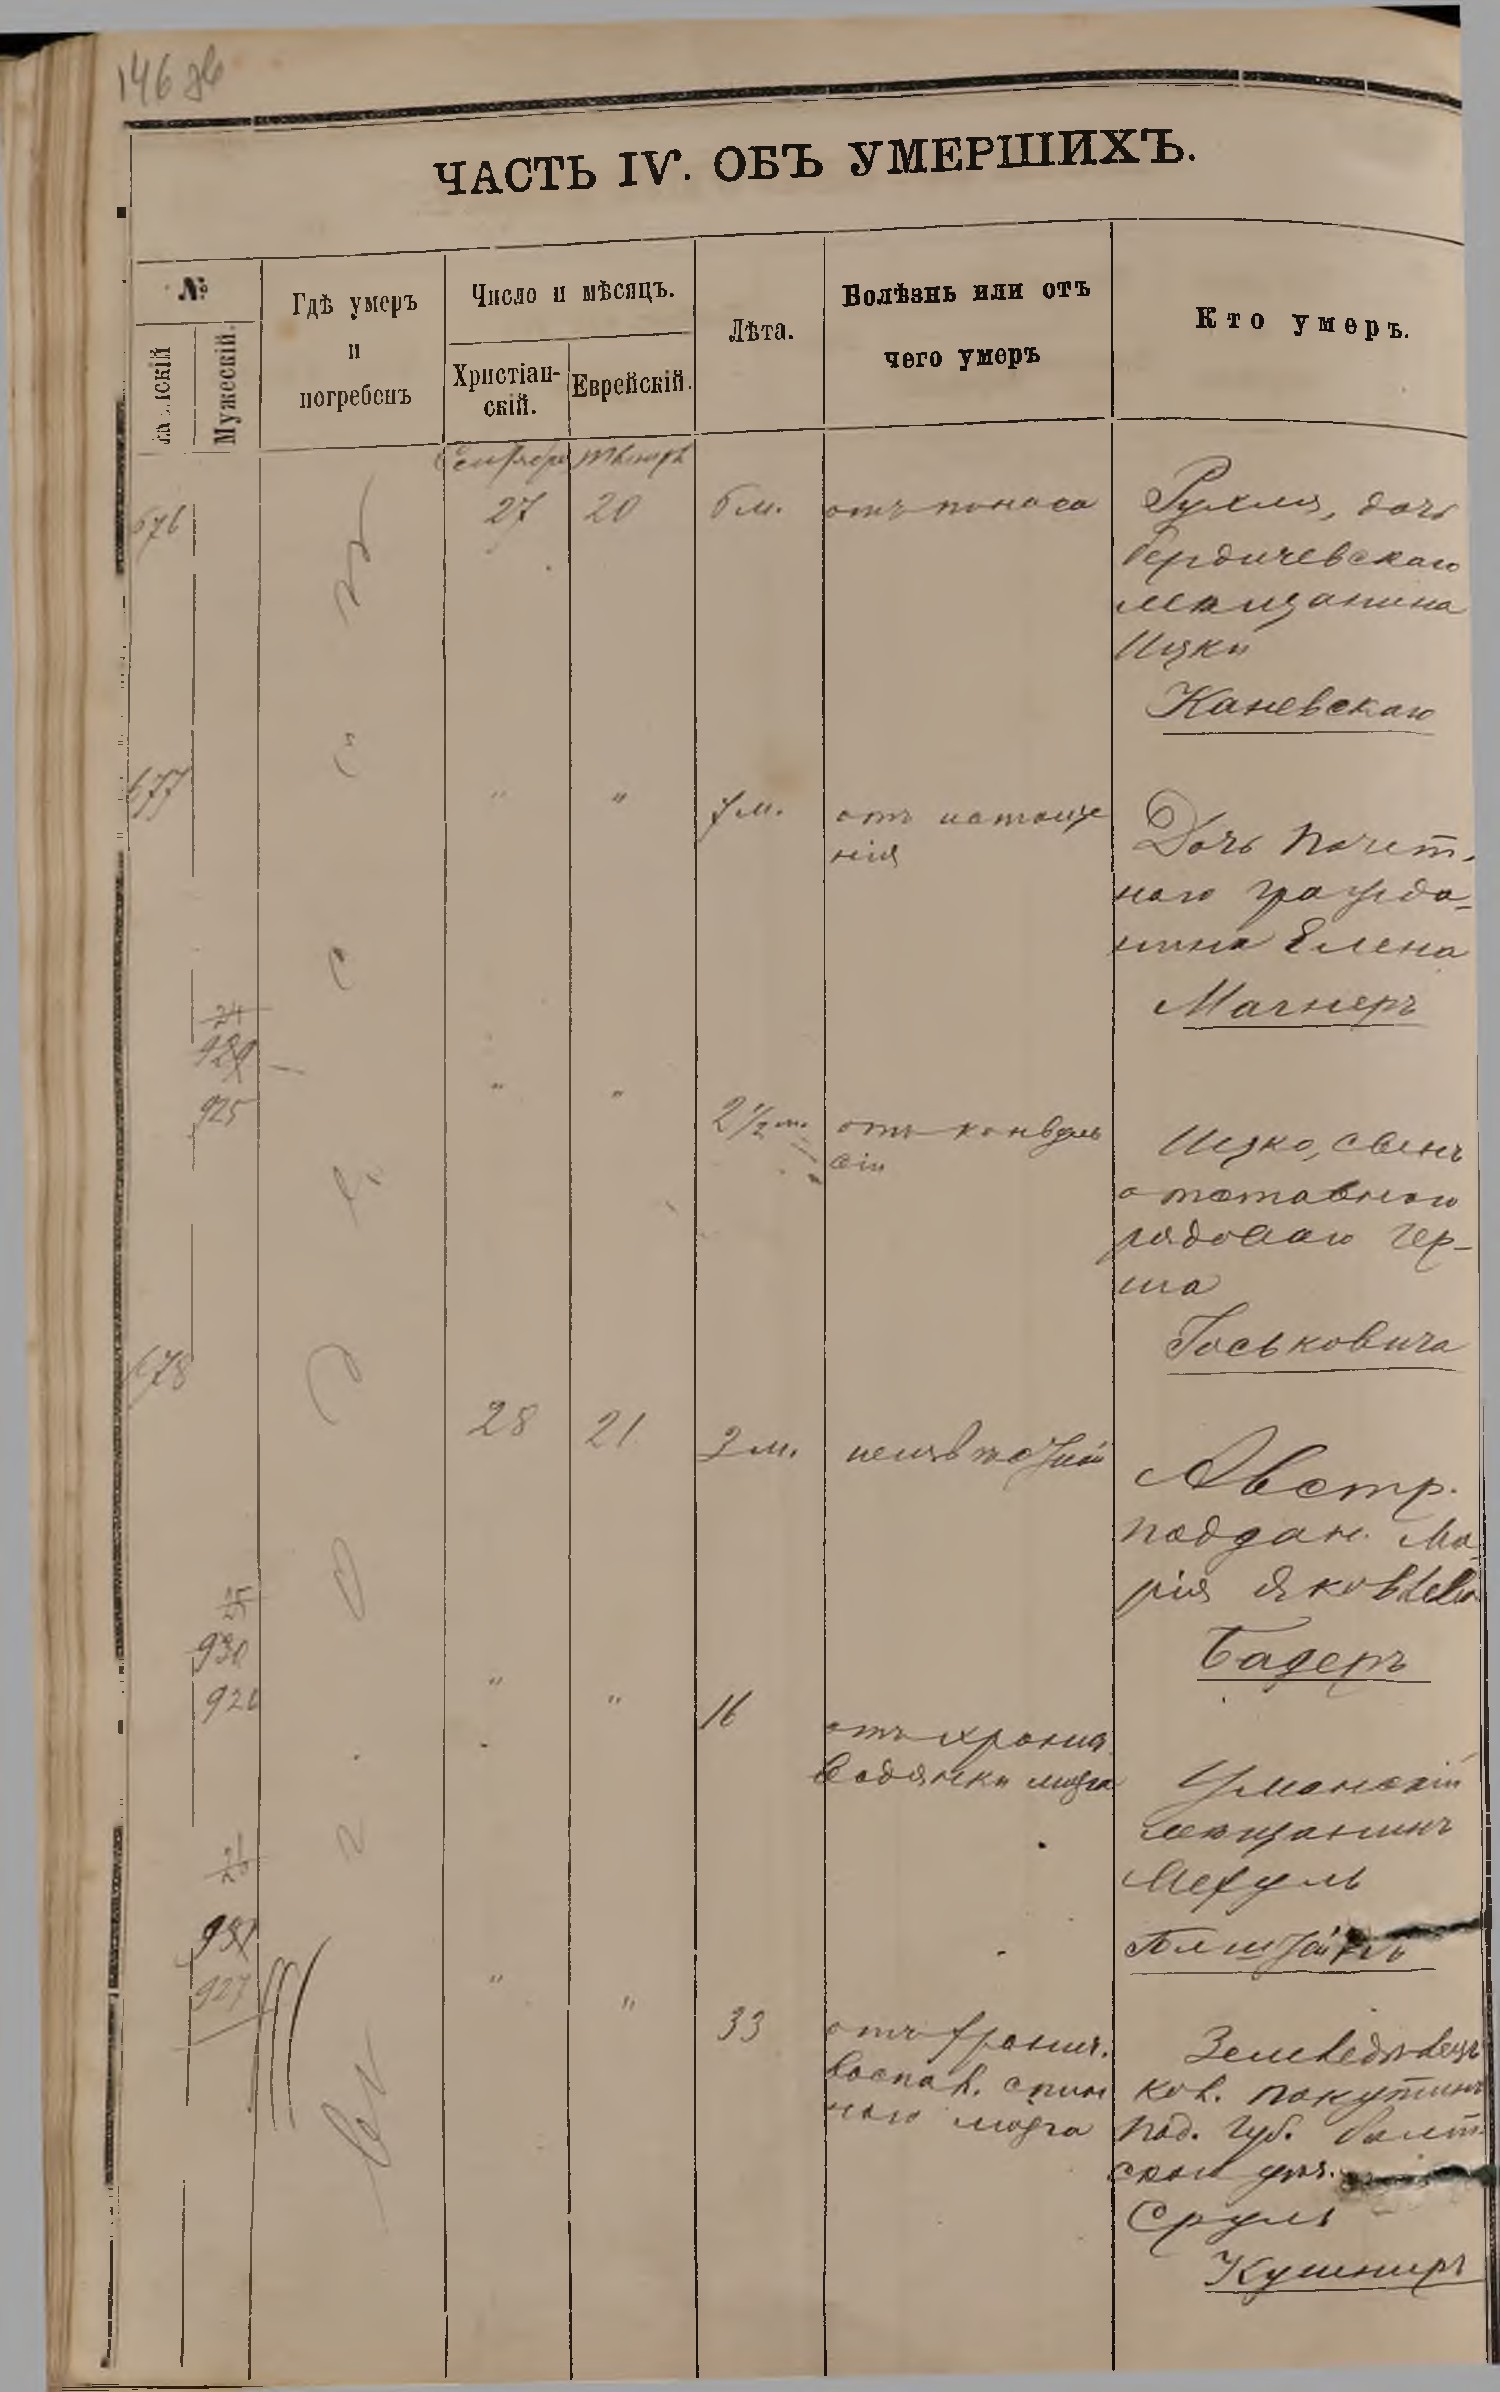 146 об
ЧАСТЬ IV. ОБЪ УМЕРШИХЪ.
№
Мужескій.
Гдѣ умеръ
и
погребенъ
Число и мѣсяцъ.
Христіан-
скій.
Еврейскій.
Лѣта.
Болѣзнь или отъ
чего умеръ
Кто умеръ.
Сентября
676
27
20
6 м.
отъ поноса
Рухля, дочь
бердичевскаго
мѣщанина
Ицки
Каневскаго
677
"
"
7 м.
отъ истоще
нія
Дочь почет-
наго гражда-
нина Елена
Магнеръ
24
925
"
"
2 1/2 м.
отъ конвуль
сіи
Ицко, сынъ
отставного
рядоваго Гер-
ша
Госьковича
678
28
21
3 м.
Австр.
поддан. Ма
рія Яковлева
Бадеръ
25
930
926
"
"
16
отъ хронич.
водянки мозга
Уманскій
мѣщанинъ
Мехуль
26
931
927
"
"
33
отъ хронич.
воспал. спин
ного мозга
Земледѣлецъ
кол.
Под. губ. балт
скаго уѣз.
Сруль
Кушниръ